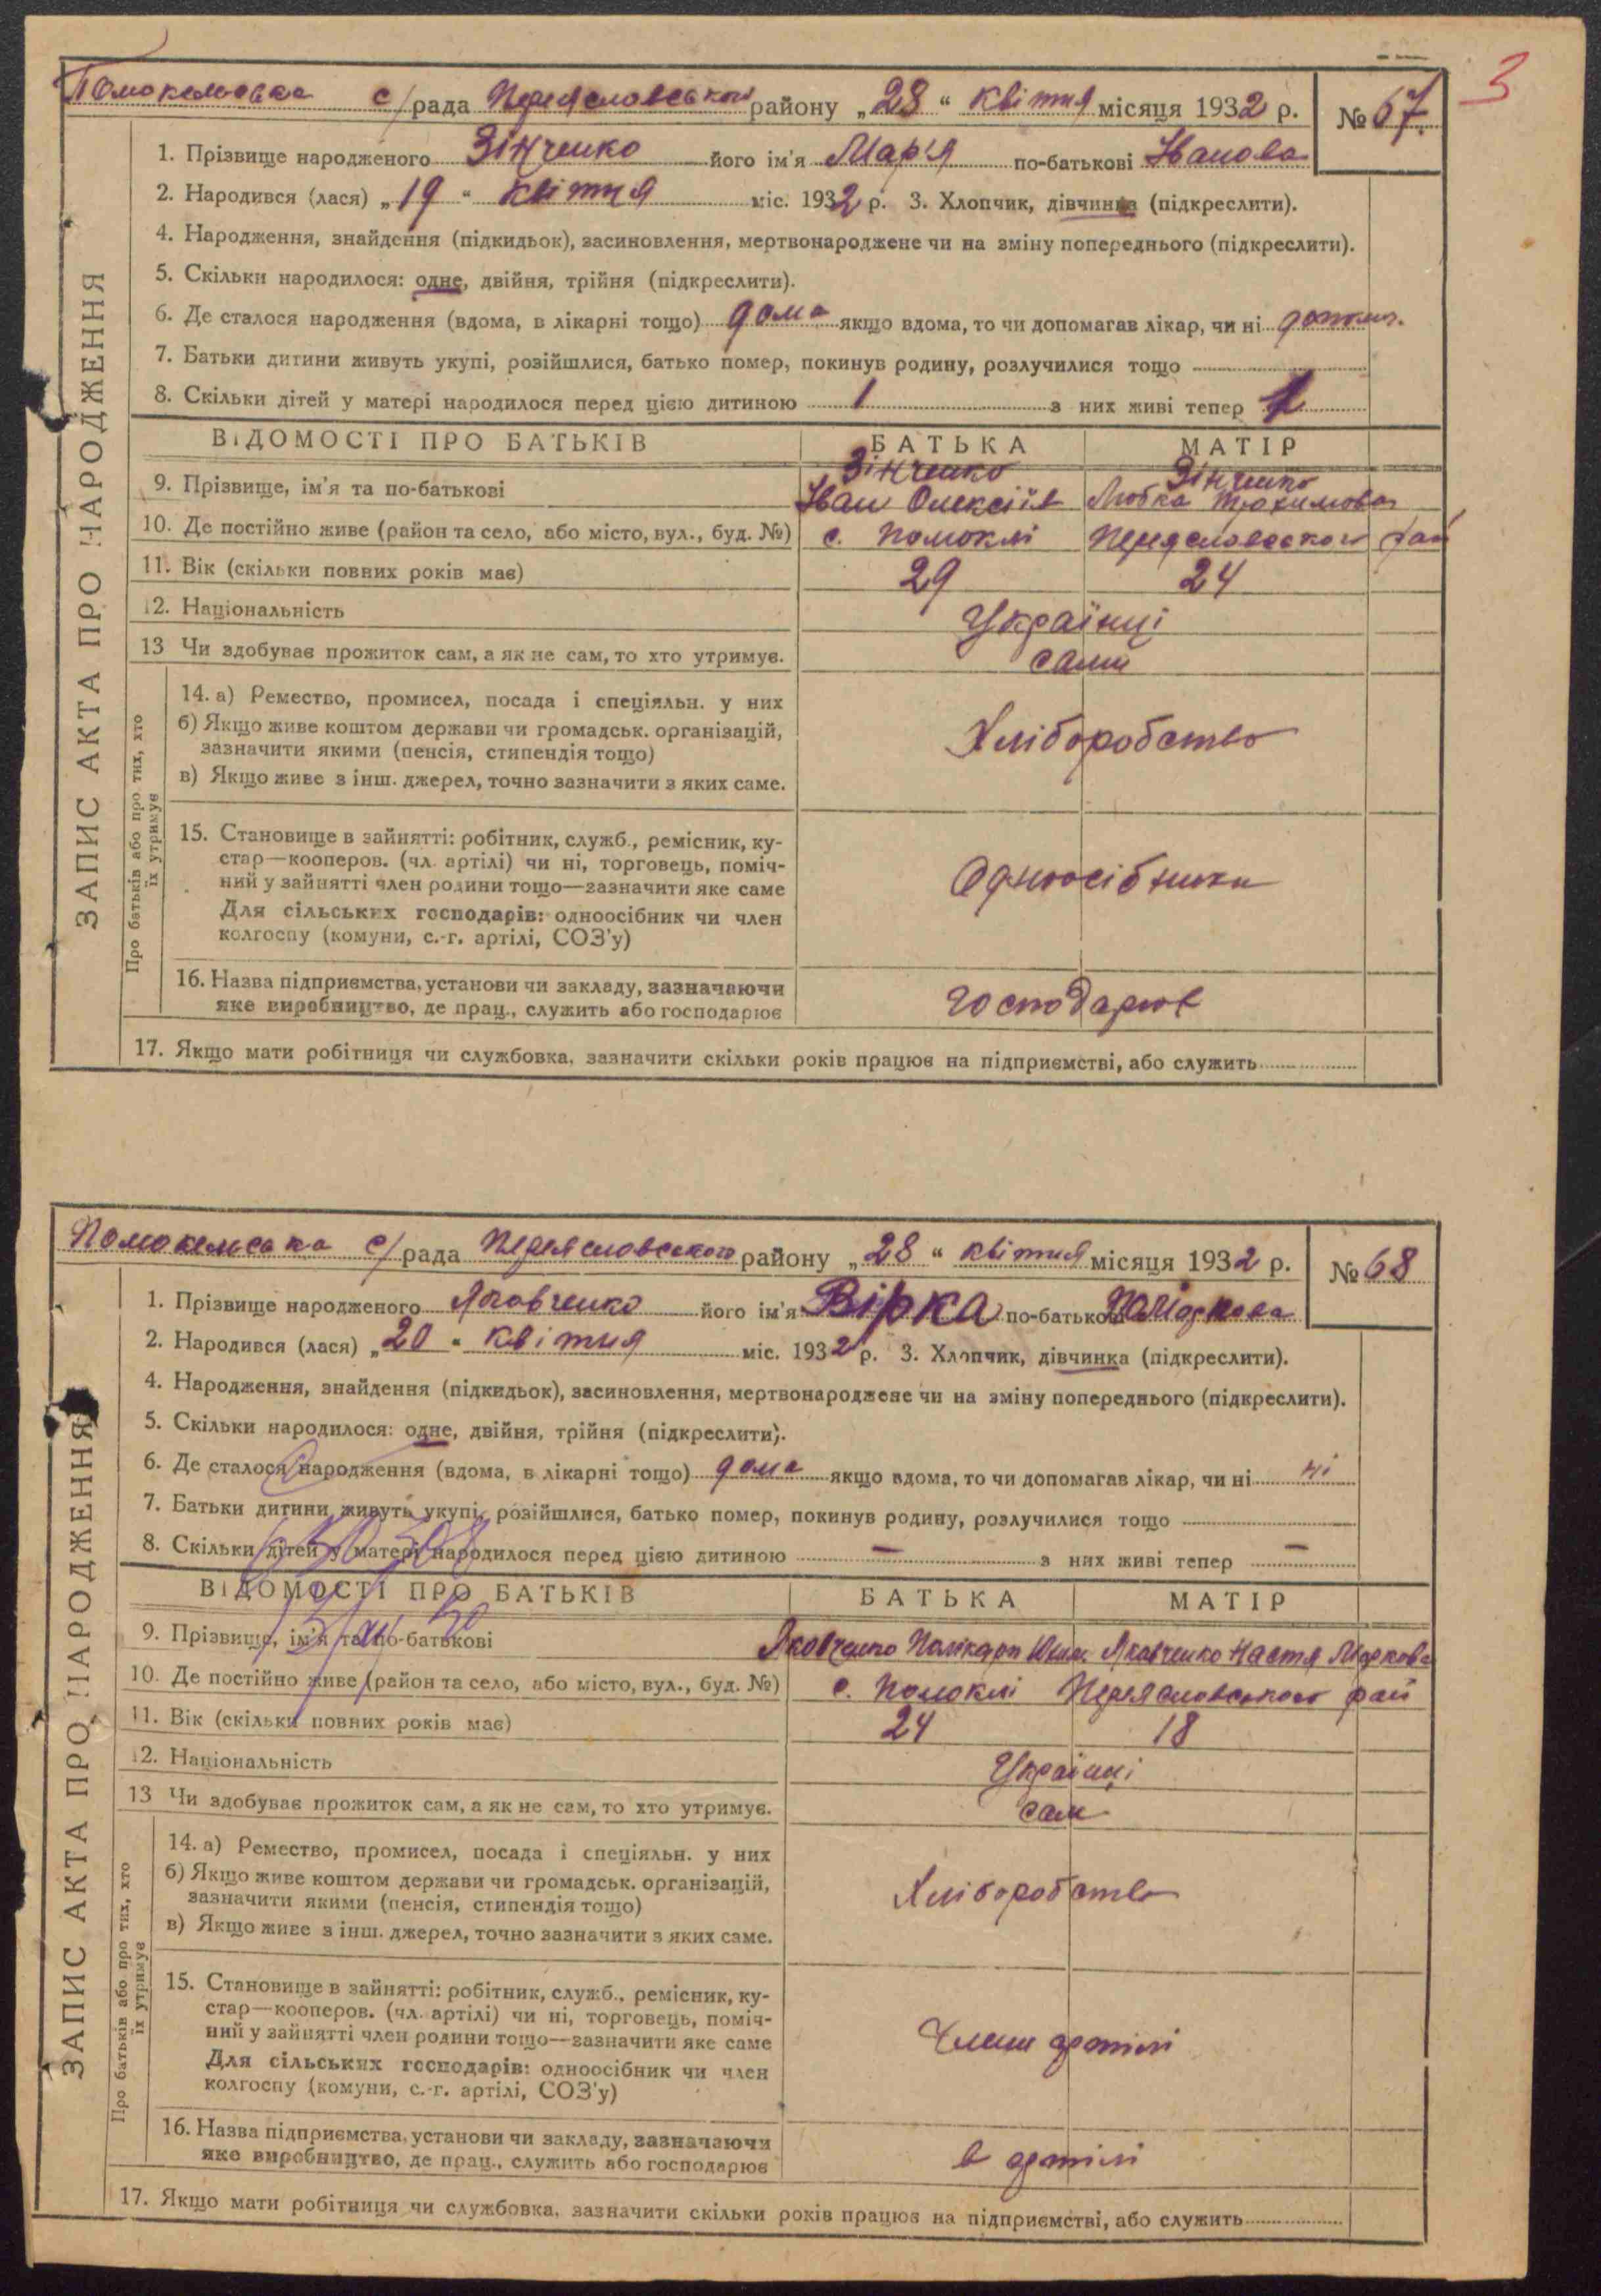 3
Помокельська с/рада Переяславського району „28“ квітня місяця 1932 р. № 67.
1. Прізвище народженого Зінченко його ім'я Мар'я по-батькові Іванова
2. Народився (лася) „19“ квітня міс. 1932 р. 3. Хлопчик, дівчинка (підкреслити).
4. Народження, знайдення (підкидьок), засиновлення, мертвонароджене чи на зміну попереднього (підкреслити).
5. Скільки народилося: одне, двійня, трійня (підкреслити).
6. Де сталося народження (вдома, в лікарні тощо) дома якщо вдома, то чи допомагав лікар, чи ні
7. Батьки дитини живуть укупі, розійшлися, батько помер, покинув родину, розлучилися тощо
8. Скільки дітей у матері народилося перед цією дитиною 1 з них живі тепер 1
ВІДОМОСТІ ПРО БАТЬКІВ БАТЬКА МАТІР
Зінченко Зінченко
9. Прізвище, ім'я та по-батькові Іван Олексіїв Любка Трохимова
10. Де постійно живе (район та село, або місто, вул., буд. №) с. Помоклі Переяславського рай
11. Вік (скільки повних років має) 29 24
12. Національність Українці
13 Чи здобував прожиток сам, а як не сам, то хто утримує. сами
Про батьків або про тих, хто їх утримує
14. а) Ремество, промисел, посада і спеціяльн. у них
б) Якщо живе коштом держави чи громадськ. організацій,
зазначити якими (пенсія, стипендія тощо) Хліборобство
в) Якщо живе з інш. джерел, точно зазначити з яких саме.
15. Становище в зайнятті: робітник, служб., ремісник, ку-
стар—кооперов. (чл. артілі) чи ні, торговець, поміч-
ний у зайнятті член родини тощо—зазначити яке саме Одноосібники
Для сільських господарів: одноосібник чи член
колгоспу (комуни, с.-г. артілі, СОЗ'у)
16. Назва підприємства, установи чи закладу, зазначаючи
яке виробництво, де прац., служить або господарює господарює
17. Якщо мати робітниця чи службовка, зазначити скільки років працює на підприємстві, або служить
ЗАПИС АКТА ПРО НАРОДЖЕННЯ
Помокельська с/рада Переяславського району „28“ квітня місяця 1932 р. № 68
1. Прізвище народженого Яковченко його ім'я Вірка по-батькові
2. Народився (лася) „20“ квітня міс. 1932 р. 3. Хлопчик, дівчинка (підкреслити).
4. Народження, знайдення (підкидьок), засиновлення, мертвонароджене чи на зміну попереднього (підкреслити).
5. Скільки народилося: одне, двійня, трійня (підкреслити).
6. Де сталося народження (вдома, в лікарні тощо) дома якщо вдома, то чи допомагав лікар, чи ні ні
7. Батьки дитини живуть укупі, розійшлися, батько помер, покинув родину, розлучилися тощо
8. Скільки дітей у матері народилося перед цією дитиною — з них живі тепер —
ВІДОМОСТІ ПРО БАТЬКІВ БАТЬКА МАТІР
9. Прізвище, ім'я та по-батькові Яковченко Полікарп Яковченко Настя Маркова
10. Де постійно живе (район та село, або місто, вул., буд. №) с. Помоклі Переяславського рай
11. Вік (скільки повних років має) 24 18
12. Національність Українці
13 Чи здобував прожиток сам, а як не сам, то хто утримує. сам
Про батьків або про тих, хто їх утримує
14. а) Ремество, промисел, посада і спеціяльн. у них
б) Якщо живе коштом держави чи громадськ. організацій,
зазначити якими (пенсія, стипендія тощо) Хліборобство
в) Якщо живе з інш. джерел, точно зазначити з яких саме.
15. Становище в зайнятті: робітник, служб., ремісник, ку-
стар—кооперов. (чл. артілі) чи ні, торговець, поміч-
ний у зайнятті член родини тощо—зазначити яке саме Члени артілі
Для сільських господарів: одноосібник чи член
колгоспу (комуни, с.-г. артілі, СОЗ'у)
16. Назва підприємства, установи чи закладу, зазначаючи
яке виробництво, де прац., служить або господарює в артілі
17. Якщо мати робітниця чи службовка, зазначити скільки років працює на підприємстві, або служить
ЗАПИС АКТА ПРО НАРОДЖЕННЯ